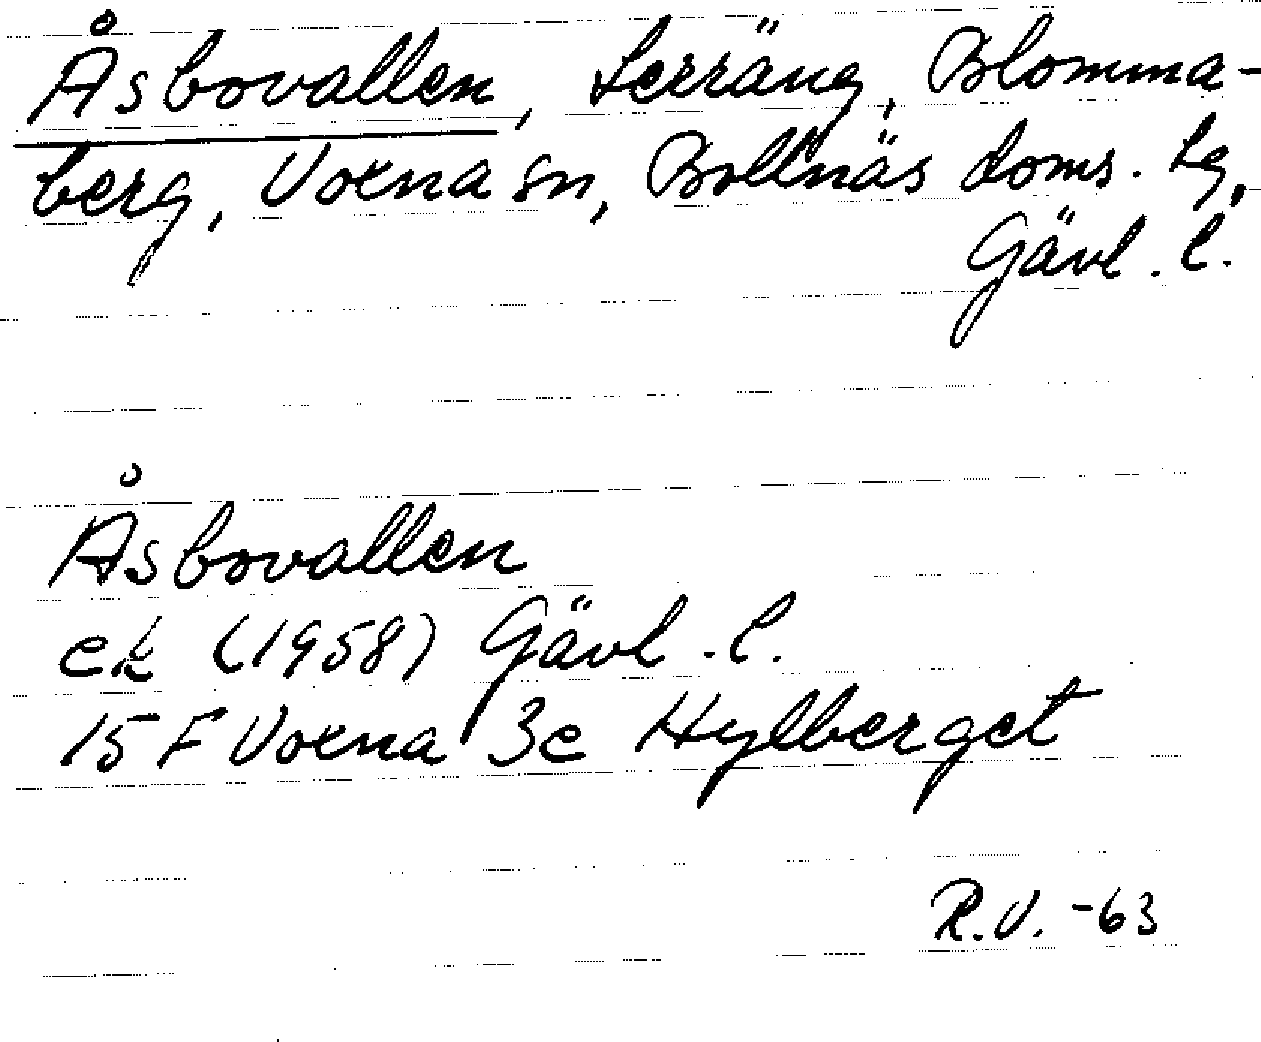 Åsbovallen, terräng, Blomma-
berg, Voxna sn, Bollnäs doms. lg,
Gävl. l.
Åsbovallen
ek (1958) Gävl. l.
15 F Voxna 3e Hylberget
R.V. -63